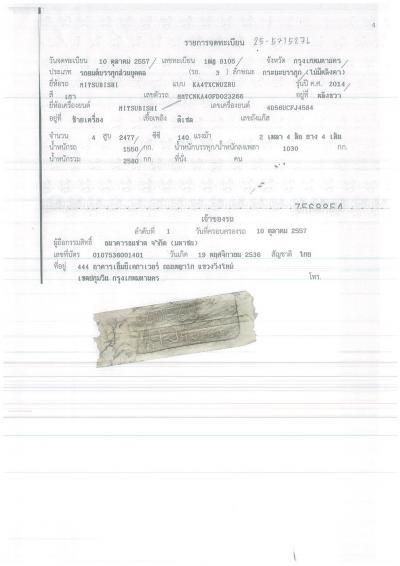 4
รายการจดทะเบียน
วันจดทะเบียน 10 ตุลาคม 2557 เลขทะเบียน 1ฒฐ 8105 จังหวัด กรุงเทพมหานคร
ประเภท รถยนต์บรรทุกส่วนบุคคล (รย. 3) ลักษณะ กระบะบรรทุก (ไม่มีหลังคา)
ยี่ห้อรถ MITSUBISHI แบบ KA4TXCNUZRU รุ่นปี ค.ศ. 2014
สี เทา เลขตัวรถ อยู่ที่ คลังขวา
ยี่ห้อเครื่องยนต์ MITSUBISHI เลขเครื่องยนต์ 4D56UCFJ4584
อยู่ที่ ซ้ายเครื่อง เชื้อเพลิง ดีเซล เลขถังแก๊ส
จำนวน 4 สูบ 2477 ซีซี 140 แรงม้า 2 เพลา 4 ล้อ ยาง 4 เส้น
น้ำหนักรถ 1550 กก. น้ำหนักบรรทุก/น้ำหนักลงเพลา 1030 กก.
น้ำหนักรวม 2580 กก. ที่นั่ง คน
เจ้าของรถ
ลำดับที่ 1 วันที่ครอบครองรถ 10 ตุลาคม 2557
ผู้ถือกรรมสิทธิ์ ธนาคารธนชาต จำกัด (มหาชน)
เลขที่บัตร 0107536001401 วันเกิด 19 พฤศจิกายน 2536 สัญชาติ ไทย
ที่อยู่ 444 อาคารเอ็มบีเคทาวเวอร์ ถนนพญาไท แขวงวังใหม่
เขตปทุมวัน กรุงเทพมหานคร โทร.